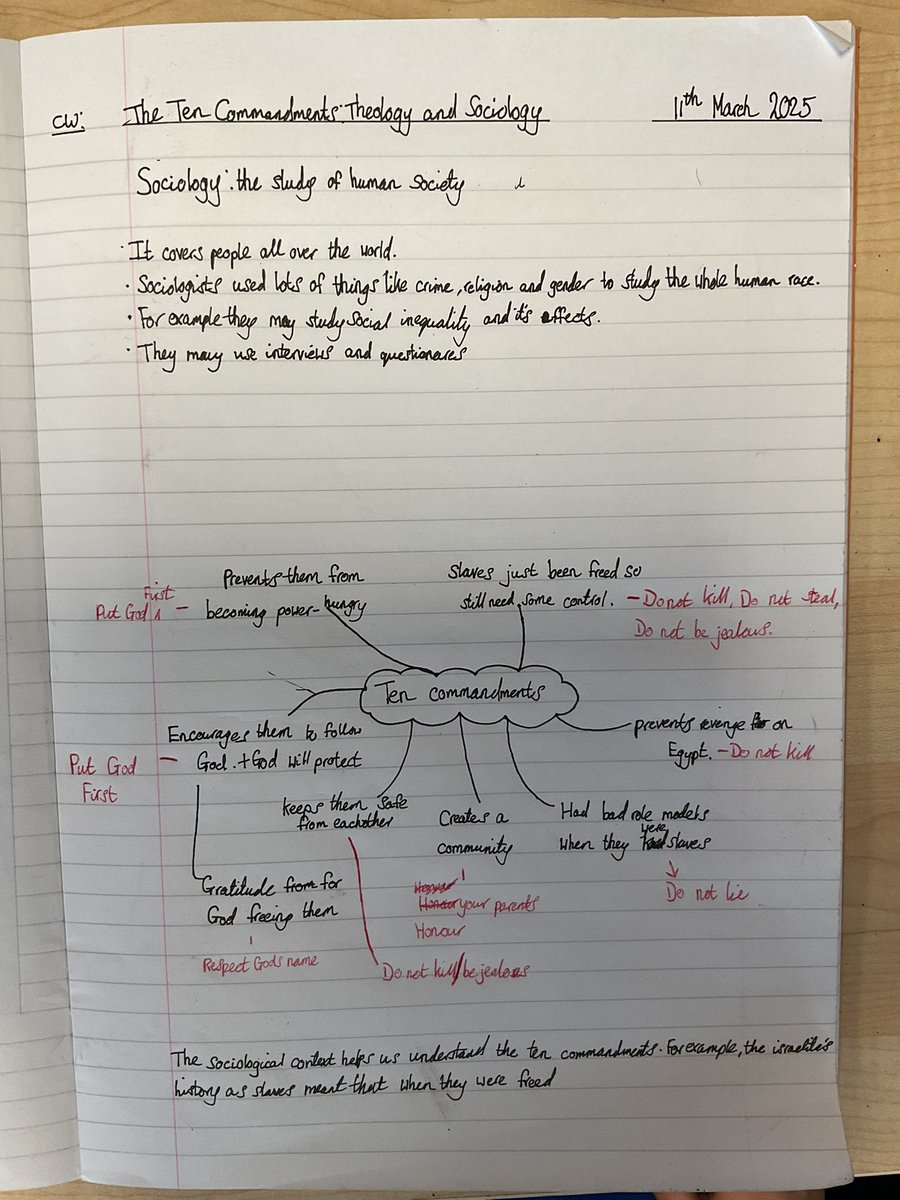 CW: The Ten Commandments: Theology and Sociology 11th March 2025
Sociology: the study of human society
· It covers people all over the world.
· Sociologists used lots of things like crime, religion and gender to study the whole human race.
· For example they may study social inequality and it's effects.
· They may use interviews and questionares
Prevents them from
becoming power-hungry
Put God First —
Slaves just been freed so
still need some control. — Do not kill, Do not steal,
Do not be jealous.
Ten commandments
Encourages them to follow
God. + God will protect
Put God —
First
prevents revenge on
Egypt. — Do not kill
keeps them safe
from eachother
Creates a
community
Had bad role models
when they were slaves
Gratitude for
God freeing them
Respect Gods name
Honour
Honour your parents
Honour
Do not lie
Do not kill/be jealous
The sociological context helps us understand the ten commandments. For example, the israelite's
history as slaves meant that when they were freed